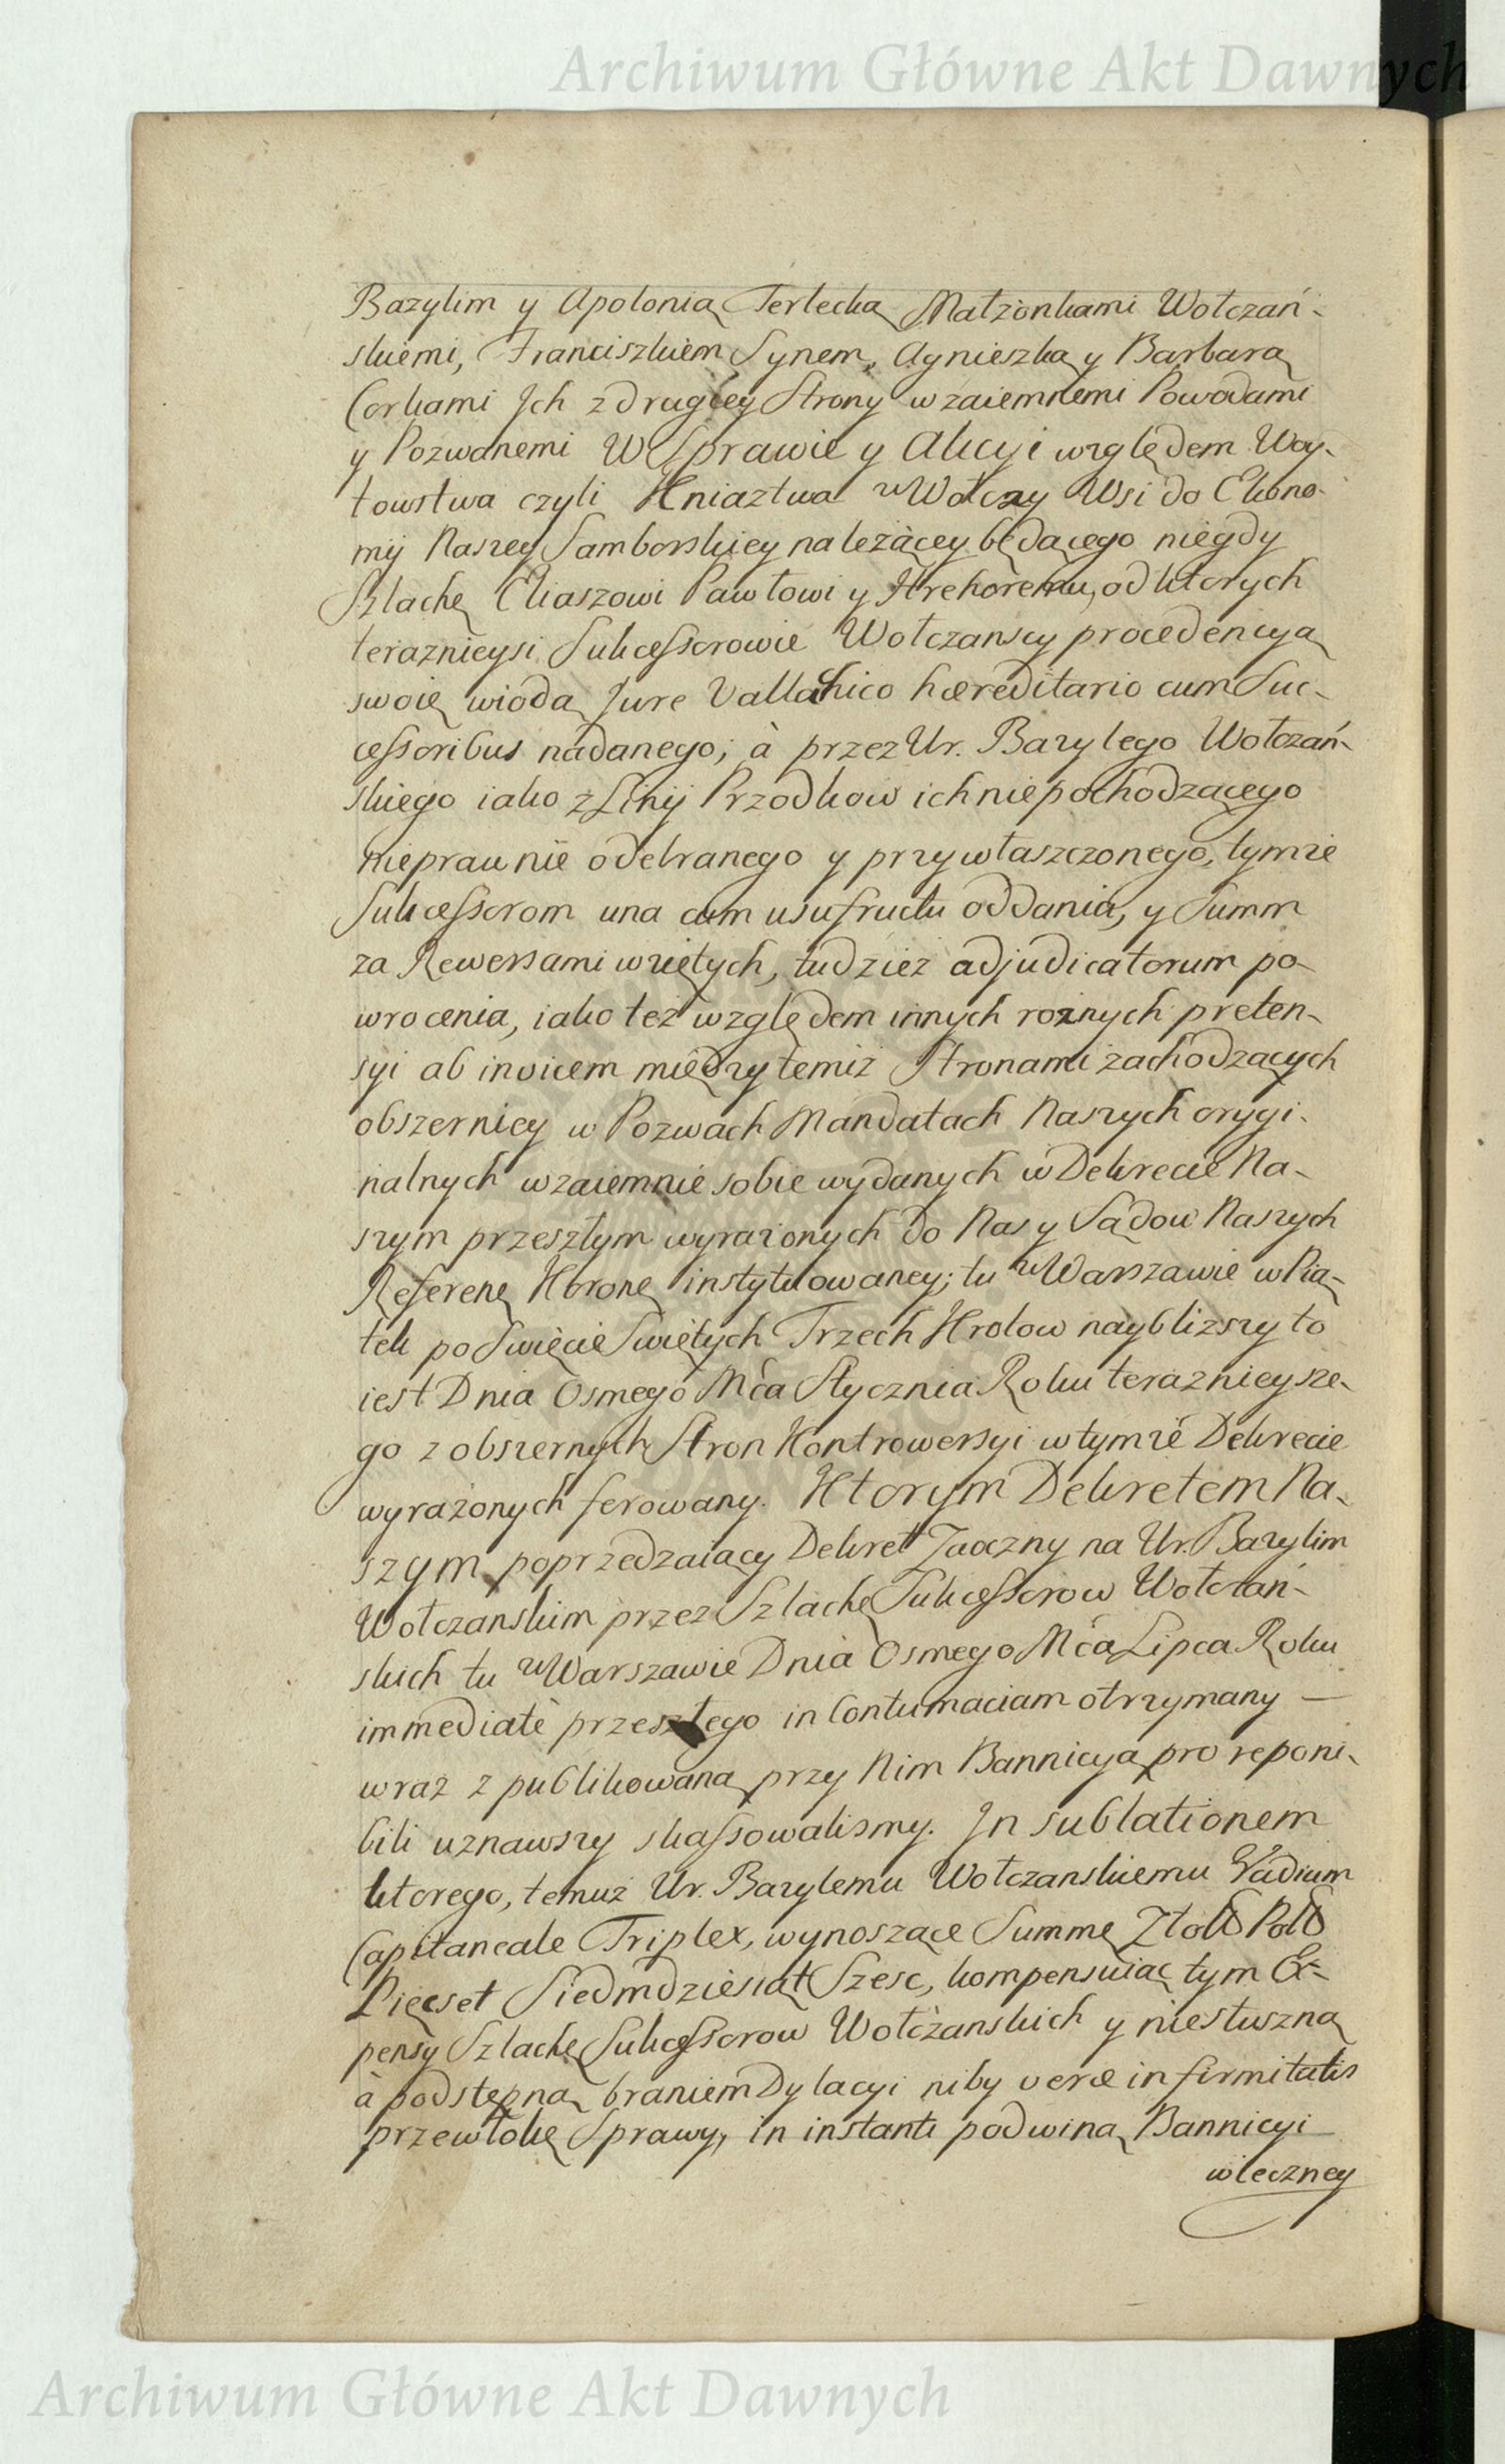 Archiwum Główne Akt Dawnych
Bazylim y Apolonią Terlecką Małżonkami Wołczań-
skiemi, Franciszkiem Synem, Agnieszką y Barbarą
Corkami Ich z drugiey Strony wzaiemnemi Powodami
y Pozwanemi W Sprawie y Akcyi względem Woy-
towstwa czyli Kniaztwa w Wołczy Wsi do Ekono-
mij Naszey Samborskiey należącey będącego niegdy
Szlachę Eliaszowi Pawłowi y Hrehoremu, od ktorych
teraznieysi Sukcessorowie Wołczanscy procedencyą
swoię wiodą Jure Vallachico hæreditario cum Suc-
cessoribus nadanego, à przez Ur. Bazylego Wołczań-
skiego iako z Linij Przodkow ich niepochodzącego
nieprawnie odebranego y przywłaszczonego, tymże
Sukcessorom una cum usufructu oddania, y Summ
za Rewersami wziętych, tudzież adjudicatorum po-
wrocenia, iako też względem innych rożnych preten-
syi ab invicem między temiż Stronami zachodzących
obszerniey w Pozwach Mandatach Naszych orygi-
nalnych wzaiemnie sobie wydanych w Dekrecie Na-
szym przeszłym wyrażonych do Nas y Sądow Naszych
Referenę Kronę instytuowaney; tu w Warszawie w Pią-
tek po Swięcie Swiętych Trzech Krolow naybliższy to
iest Dnia Osmego Mca Stycznia Roku teraznieysze-
go z obszernych Stron Kontrowersyi w tymże Dekrecie
wyrażonych ferowany. Ktorym Dekretem Na-
szym poprzedzaiący Dekret Zaoczny na Ur. Bazylim
Wołczanskim przez Szlachę Sukcessorow Wołczań-
skich tu w Warszawie Dnia Osmego Mca Lipca Roku
immediatè przeszłego in Contumaciam otrzymany —
wraz z publikowaną przy Nim Bannicyą pro reponi-
bili uznawszy skassowalismy. In sublationem
ktorego, temuż Ur. Bazylemu Wołczanskiemu Vadium
Capitaneale Triplex, wynoszące Summę Złotб Polб
Pięcset Siedmdziesiąt Szesc, kompensuiąc tym Ex-
pensy Szlachę Sukcessorow Wołczanskich y niesłuszną
à podstępną braniem Dylacyi niby veræ infirmitatis
przewłokę Sprawy, in instanti pod winą Bannicyi
wieczney
Archiwum Główne Akt Dawnych